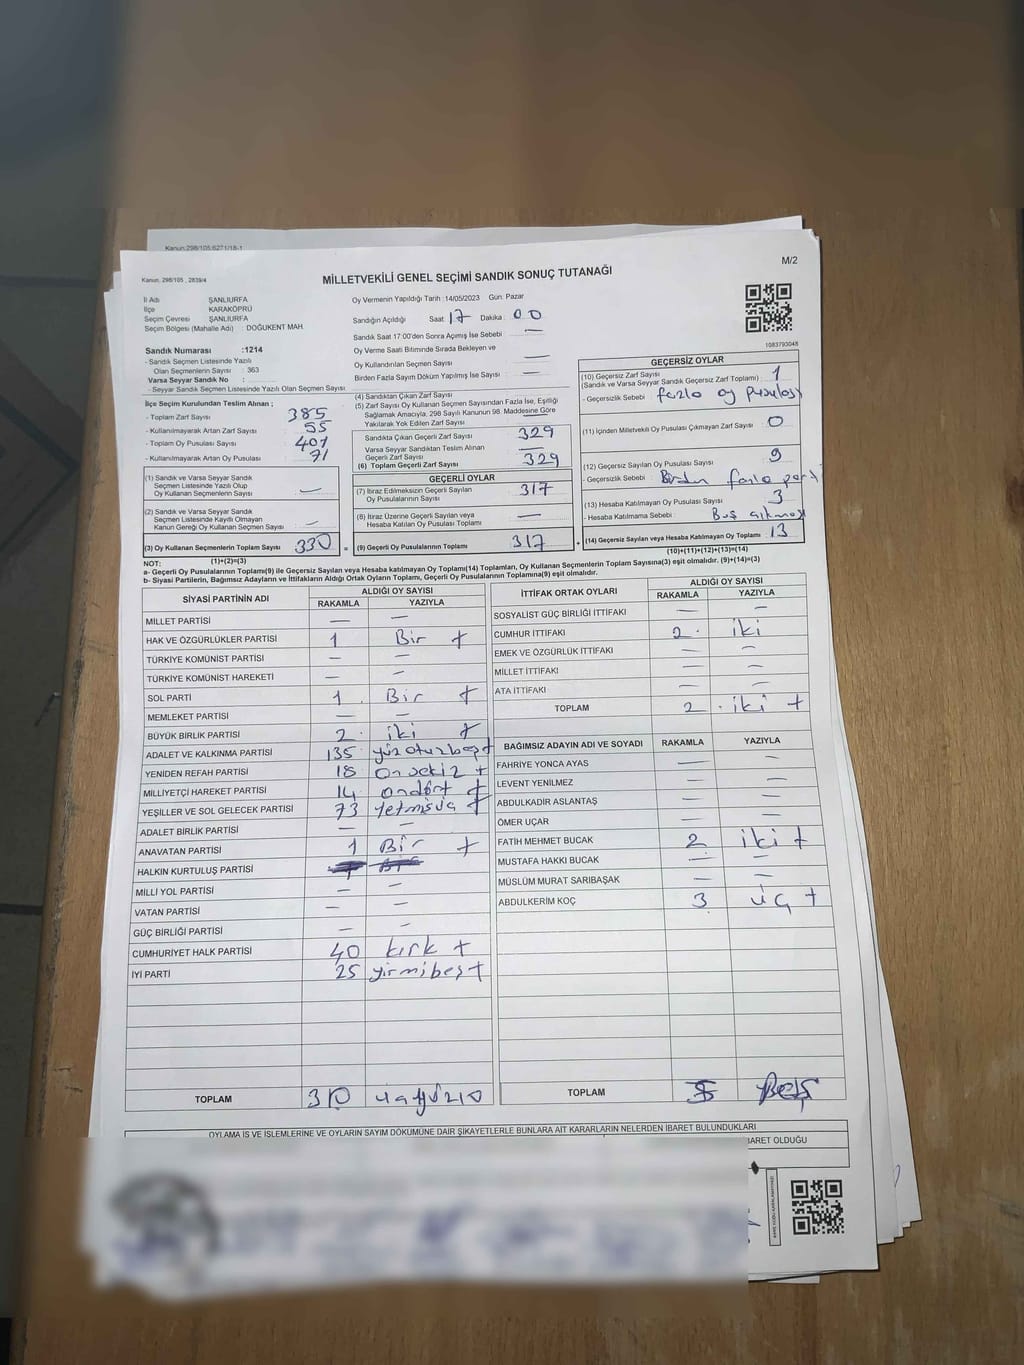 Kanun:298/105;6271/18-1
Kanun, 298/105 , 2839/4
MİLLETVEKİLİ GENEL SEÇİMİ SANDIK SONUÇ TUTANAĞI
M/2
İl Adı ŞANLIURFA
İlçe KARAKÖPRÜ
Seçim Çevresi ŞANLIURFA
Seçim Bölgesi (Mahalle Adı) : DOĞUKENT MAH.
Oy Vermenin Yapıldığı Tarih :14/05/2023 Gün: Pazar
Sandığın Açıldığı Saat: 17 Dakika : 00
Sandık Saat 17:00'den Sonra Açımış İse Sebebi —
Oy Verme Saati Bitiminde Sırada Bekleyen ve
Oy Kullandırılan Seçmen Sayısı —
Birden Fazla Sayım Döküm Yapılmış İse Sayısı —
1083793048
Sandık Numarası :1214
- Sandık Seçmen Listesinde Yazılı
Olan Seçmenlerin Sayısı : 363
Varsa Seyyar Sandık No :
- Seyyar Sandık Seçmen Listesinde Yazılı Olan Seçmen Sayısı
İlçe Seçim Kurulundan Teslim Alınan ;
- Toplam Zarf Sayısı 385
- Kullanılmayarak Artan Zarf Sayısı 55
- Toplam Oy Pusulası Sayısı 401
- Kullanılmayarak Artan Oy Pusulası 71
(1) Sandık ve Varsa Seyyar Sandık
Seçmen Listesinde Yazılı Olup
Oy Kullanan Seçmenlerin Sayısı —
(2) Sandık ve Varsa Seyyar Sandık
Seçmen Listesinde Kayıtlı Olmayan
Kanun Gereği Oy Kullanan Seçmen Sayısı —
(3) Oy Kullanan Seçmenlerin Toplam Sayısı 330
(1)+(2)=(3)
(4) Sandıktan Çıkan Zarf Sayısı
(5) Zarf Sayısı Oy Kullanan Seçmen Sayısından Fazla İse, Eşitliği
Sağlamak Amacıyla, 298 Sayılı Kanunun 98. Maddesine Göre
Yakılarak Yok Edilen Zarf Sayısı —
Sandıkta Çıkan Geçerli Zarf Sayısı 329
Varsa Seyyar Sandıktan Teslim Alınan
Geçerli Zarf Sayısı —
(6) Toplam Geçerli Zarf Sayısı 329
GEÇERLİ OYLAR
(7) İtiraz Edilmeksizin Geçerli Sayılan
Oy Pusulalarının Sayısı 317
(8) İtiraz Üzerine Geçerli Sayılan veya
Hesaba Katılan Oy Pusulası Toplamı —
= (9) Geçerli Oy Pusulalarının Toplamı 317
GEÇERSİZ OYLAR
(10) Geçersiz Zarf Sayısı
(Sandık ve Varsa Seyyar Sandık Geçersiz Zarf Toplamı) : 1
- Geçersizlik Sebebi fazla oy pusulası
(11) İçinden Milletvekili Oy Pusulası Çıkmayan Zarf Sayısı 0
(12) Geçersiz Sayılan Oy Pusulası Sayısı 9
- Geçersizlik Sebebi Birden fazla parti
(13) Hesaba Katılmayan Oy Pusulası Sayısı 3
- Hesaba Katılmama Sebebi : Boş çıkması
+ (14) Geçersiz Sayılan veya Hesaba Katılmayan Oy Toplamı 13
(10)+(11)+(12)+(13)=(14)
NOT:
a- Geçerli Oy Pusulalarının Toplamı(9) ile Geçersiz Sayılan veya Hesaba katılmayan Oy Toplamı(14) Toplamları, Oy Kullanan Seçmenlerin Toplam Sayısına(3) eşit olmalıdır. (9)+(14)=(3)
b- Siyasi Partilerin, Bağımsız Adayların ve İttifakların Aldığı Ortak Oyların Toplamı, Geçerli Oy Pusulalarının Toplamına(9) eşit olmalıdır.
SİYASİ PARTİNİN ADI ALDIĞI OY SAYISI
RAKAMLA YAZIYLA
MİLLET PARTİSİ — —
HAK VE ÖZGÜRLÜKLER PARTİSİ 1 Bir +
TÜRKİYE KOMÜNİST PARTİSİ — —
TÜRKİYE KOMÜNİST HAREKETİ — —
SOL PARTİ 1 Bir +
MEMLEKET PARTİSİ — —
BÜYÜK BİRLİK PARTİSİ 2 iki +
ADALET VE KALKINMA PARTİSİ 135 yüzotuzbeş +
YENİDEN REFAH PARTİSİ 18 onsekiz +
MİLLİYETÇİ HAREKET PARTİSİ 14 ondört +
YEŞİLLER VE SOL GELECEK PARTİSİ 73 Yetmişüç +
ADALET BİRLİK PARTİSİ — —
ANAVATAN PARTİSİ 1 Bir +
HALKIN KURTULUŞ PARTİSİ
MİLLİ YOL PARTİSİ — —
VATAN PARTİSİ — —
GÜÇ BİRLİĞİ PARTİSİ — —
CUMHURİYET HALK PARTİSİ 40 kırk +
İYİ PARTİ 25 yirmibeş +
TOPLAM 310 üçyüzon
İTTİFAK ORTAK OYLARI ALDIĞI OY SAYISI
RAKAMLA YAZIYLA
SOSYALİST GÜÇ BİRLİĞİ İTTİFAKI — —
CUMHUR İTTİFAKI 2 iki
EMEK VE ÖZGÜRLÜK İTTİFAKI — —
MİLLET İTTİFAKI — —
ATA İTTİFAKI — —
TOPLAM 2 iki +
BAĞIMSIZ ADAYIN ADI VE SOYADI RAKAMLA YAZIYLA
FAHRİYE YONCA AYAS — —
LEVENT YENİLMEZ — —
ABDULKADİR ASLANTAŞ — —
ÖMER UÇAR — —
FATİH MEHMET BUCAK 2 iki +
MUSTAFA HAKKI BUCAK — —
MÜSLÜM MURAT SARIBAŞAK — —
ABDULKERİM KOÇ 3 üç +
TOPLAM 5 Beş
OYLAMA İŞ VE İŞLEMLERİNE VE OYLARIN SAYIM DÖKÜMÜNE DAİR ŞİKAYETLERLE BUNLARA AİT KARARLARIN NELERDEN İBARET BULUNDUKLARI
BARET OLDUĞU